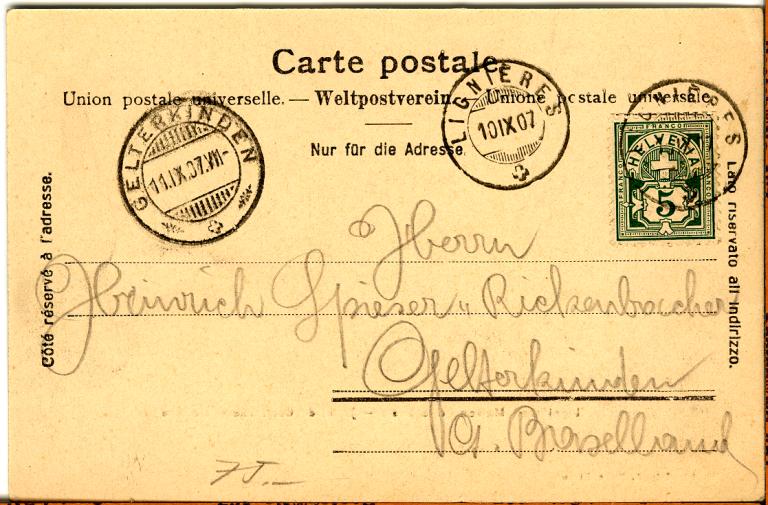 Carte postale.
Union postale universelle. — Weltpostverein. — Unione postale universale.
Nur für die Adresse.
Côté réservé à l'adresse.
Lato riservato all' indirizzo.
GELTERKINDEN
11.IX.07.VII-
LIGNIÈRES
10 IX 07
LIGNIÈRES
FRANCO
HELVETIA
5
Herrn
Heinrich Spieser-Rickenbacher
Gelterkinden
Kt. Baselland